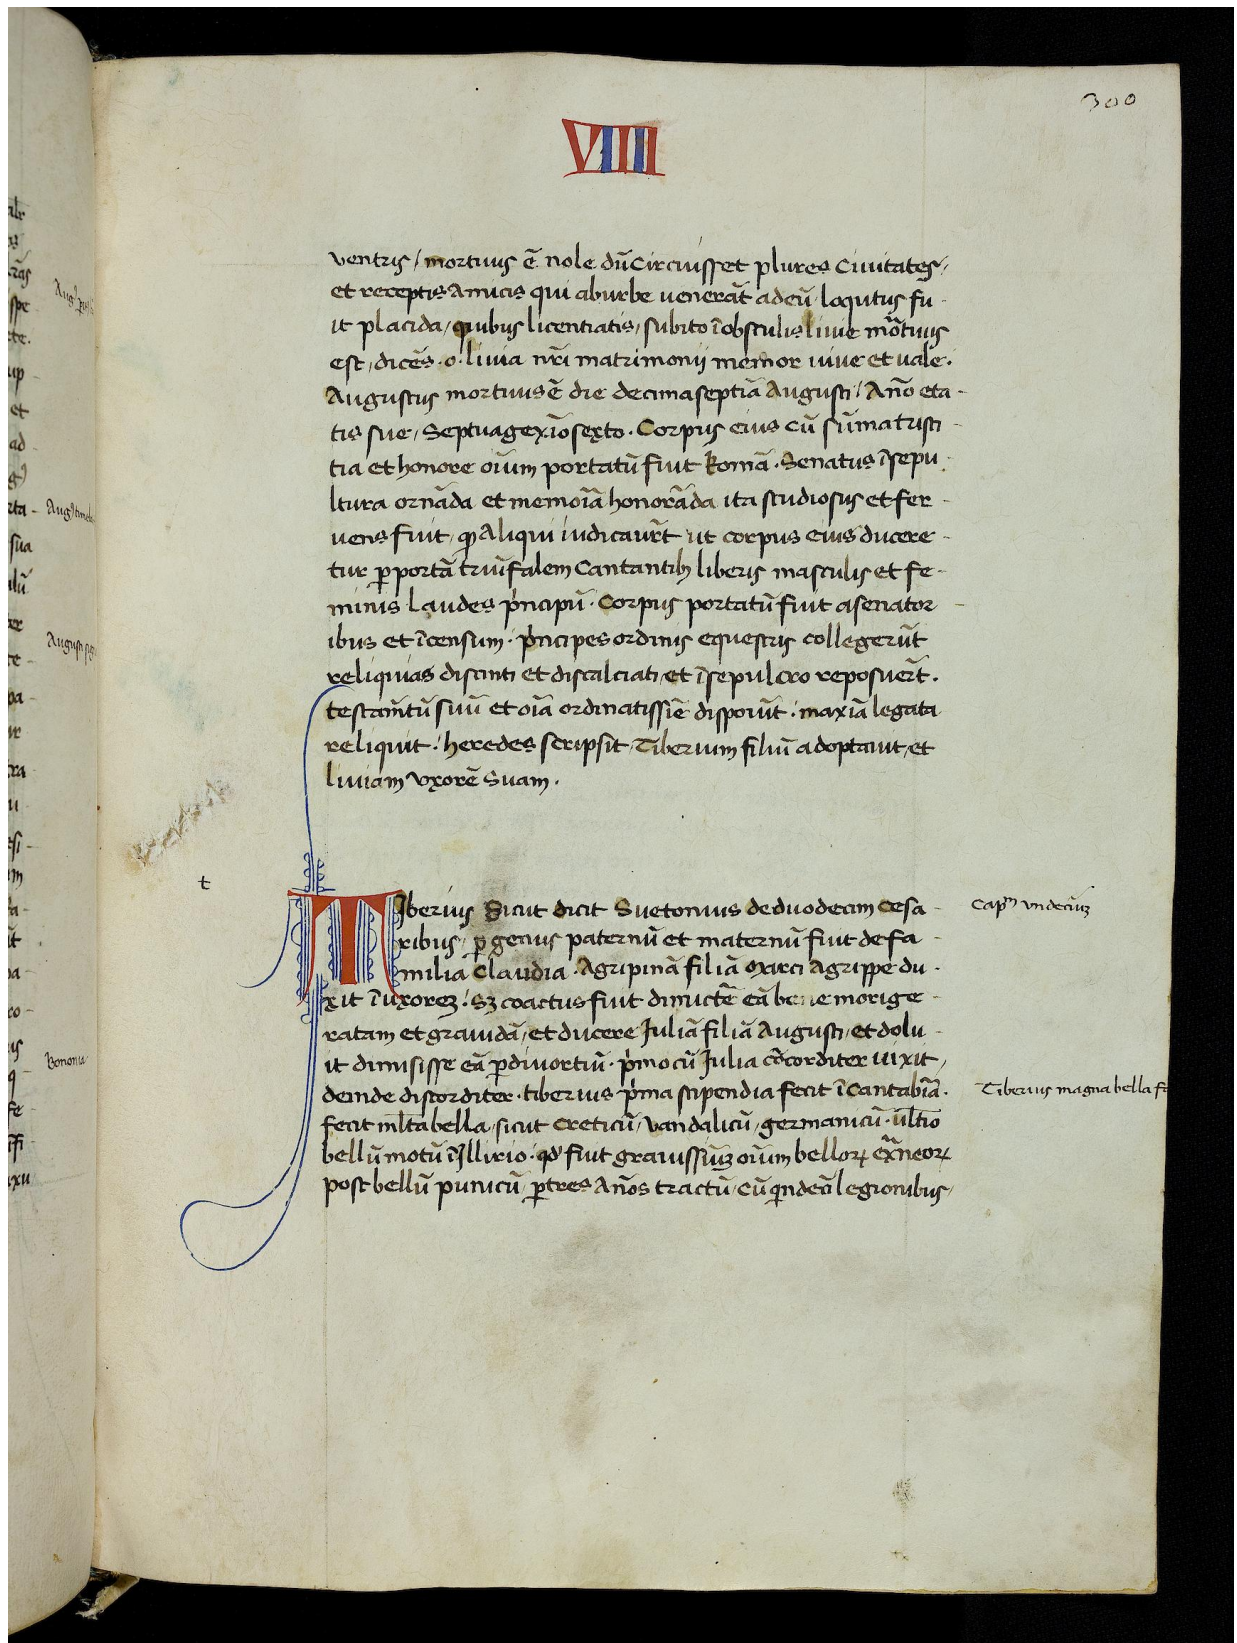 300
VIIII
ventris / mortuus ē nole dū Circuisset plures Ciuitates /
et receptis Amicis qui ab urbe uenerāt ad eū / loqutus fu -
it placida / quibus licentiatis / subito ī obsculis liuie mōtuus
est / dicēs · o · liuia nr̄i matrimonii memor uiue et uale ·
Augustus mortuus ē die decima septīa Augusti / An̄o eta -
tis sue / Septuagexīo sexto · Corpus eius cū sūma tristi -
tia et honore oīum portatū fuit Romā · Senatus ī sepu -
ltura ornāda et memoīa honorāda ita studiosus et fer -
uens fuit / qꝫ Aliqui iudicaur̄t ut corpus eius ducere -
tur ꝑ portā triūfalem Cantantibꝫ liberis masculis et fe -
minis Laudes pⁱncipū · Corpus portatū fuit a senator -
ibus et īcensum · pⁱncipes ordinis equestris collegerūt
reliquias discinti et discalciati / et ī sepulcro reposuer̄t ·
testam̄tū suū et oīa ordinatissīe disposuit · maxīa legata
reliquit · heredes scripsit Tiberium filiū adoptauit / et
liuiam Vxorē Suam ·
t
TIberius Sicut dicit Suetonius de duodecim Cesa -
ribus / ꝑ genus paternū et maternū fuit de fa -
milia Claudia · Agripinā filiā Marci Agrippe du -
xit ī uxoreꝫ · Sꝫ coactus fuit dimictē eā bene morige -
ratam et grauidā / et ducere Juliā filiā Augusti / et dolu -
it dimisisse eā ꝑ diuortiū · pⁱmo cū Julia cōcorditer uixit /
deinde discorditer · tiberius pⁱma stipendia fecit ī Cantabīa ·
fecit ml̄ta bella / sicut Creticū / Vandalicū / germanicū · ul̄tīo
bellū motū ī Jllirio · qd' fuit grauissīuꝫ oīum belloꝝ ex̄neoꝝ
post bellū punicū / ꝑ tres An̄os tractū / cū quīndecī legionibus /
Capᵐ vndecīuꝫ
Tiberius magna bella
Bononia